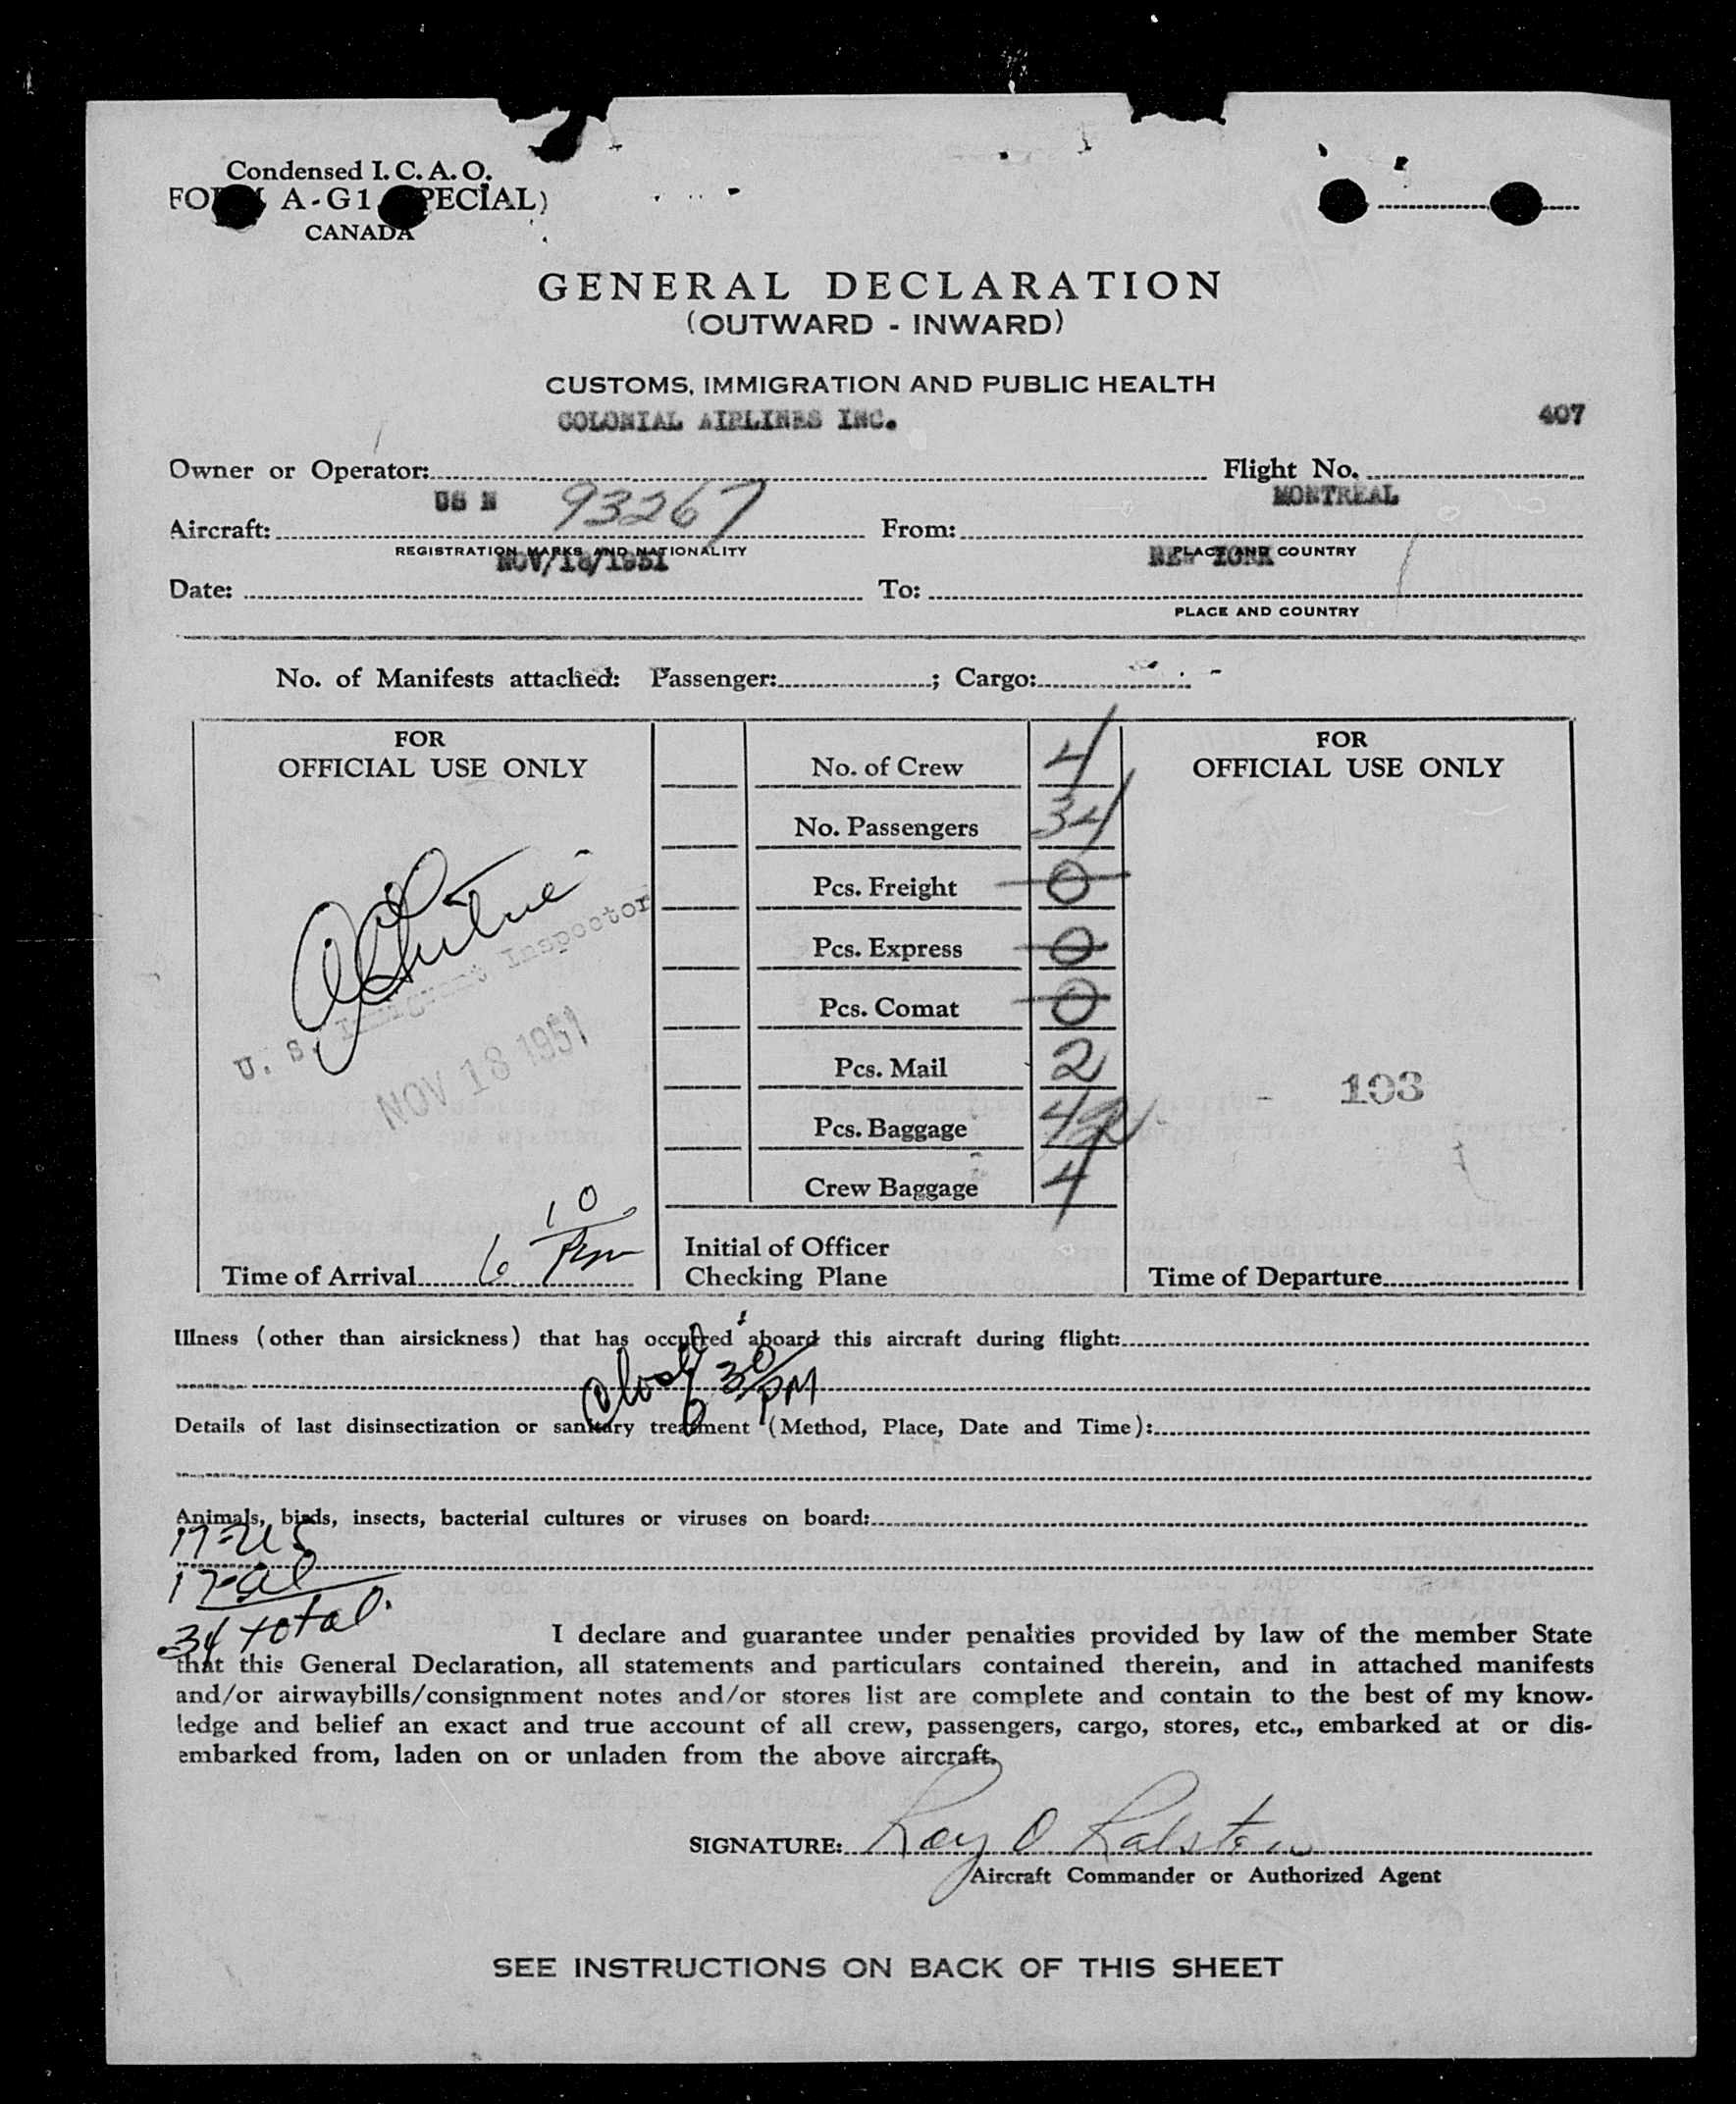 Condensed I. C. A. O.
A-G1
CANADA
GENERAL DECLARATION
(OUTWARD - INWARD)
CUSTOMS, IMMIGRATION AND PUBLIC HEALTH
COLONIAL AIRLINES INC.
407
Owner or Operator: Flight No.
US N 93267 MONTREAL
Aircraft: From:
REGISTRATION MARKS AND NATIONALITY PLACE AND COUNTRY
NOV/18/1951 NEW YORK
Date: To:
PLACE AND COUNTRY
No. of Manifests attached: Passenger: ; Cargo:
FOR
OFFICIAL USE ONLY
U. S. Immigrant Inspector
NOV 18 1951
Time of Arrival 6 10 Pm
No. of Crew 4
No. Passengers 34
Pcs. Freight 0
Pcs. Express 0
Pcs. Comat 0
Pcs. Mail 2
Pcs. Baggage 42
Crew Baggage 4
Initial of Officer
Checking Plane
FOR
OFFICIAL USE ONLY
- 193
Time of Departure
Illness (other than airsickness) that has occurred aboard this aircraft during flight:
6 30 PM
Details of last disinsectization or sanitary treatment (Method, Place, Date and Time):
Animals, birds, insects, bacterial cultures or viruses on board:
17-US
17-al
34 total.
I declare and guarantee under penalties provided by law of the member State
that this General Declaration, all statements and particulars contained therein, and in attached manifests
and/or airwaybills/consignment notes and/or stores list are complete and contain to the best of my know-
ledge and belief an exact and true account of all crew, passengers, cargo, stores, etc., embarked at or dis-
embarked from, laden on or unladen from the above aircraft.
SIGNATURE: Roy O Ralston
Aircraft Commander or Authorized Agent
SEE INSTRUCTIONS ON BACK OF THIS SHEET